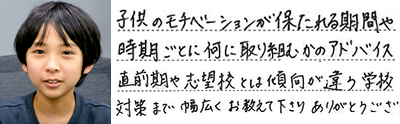 子供のモチベーションが保たれる期間や
時期ごとに何に取り組むかのアドバイス
直前期や志望校とは傾向が違う学校
対策まで幅広くお教えて下さりありがとうござ